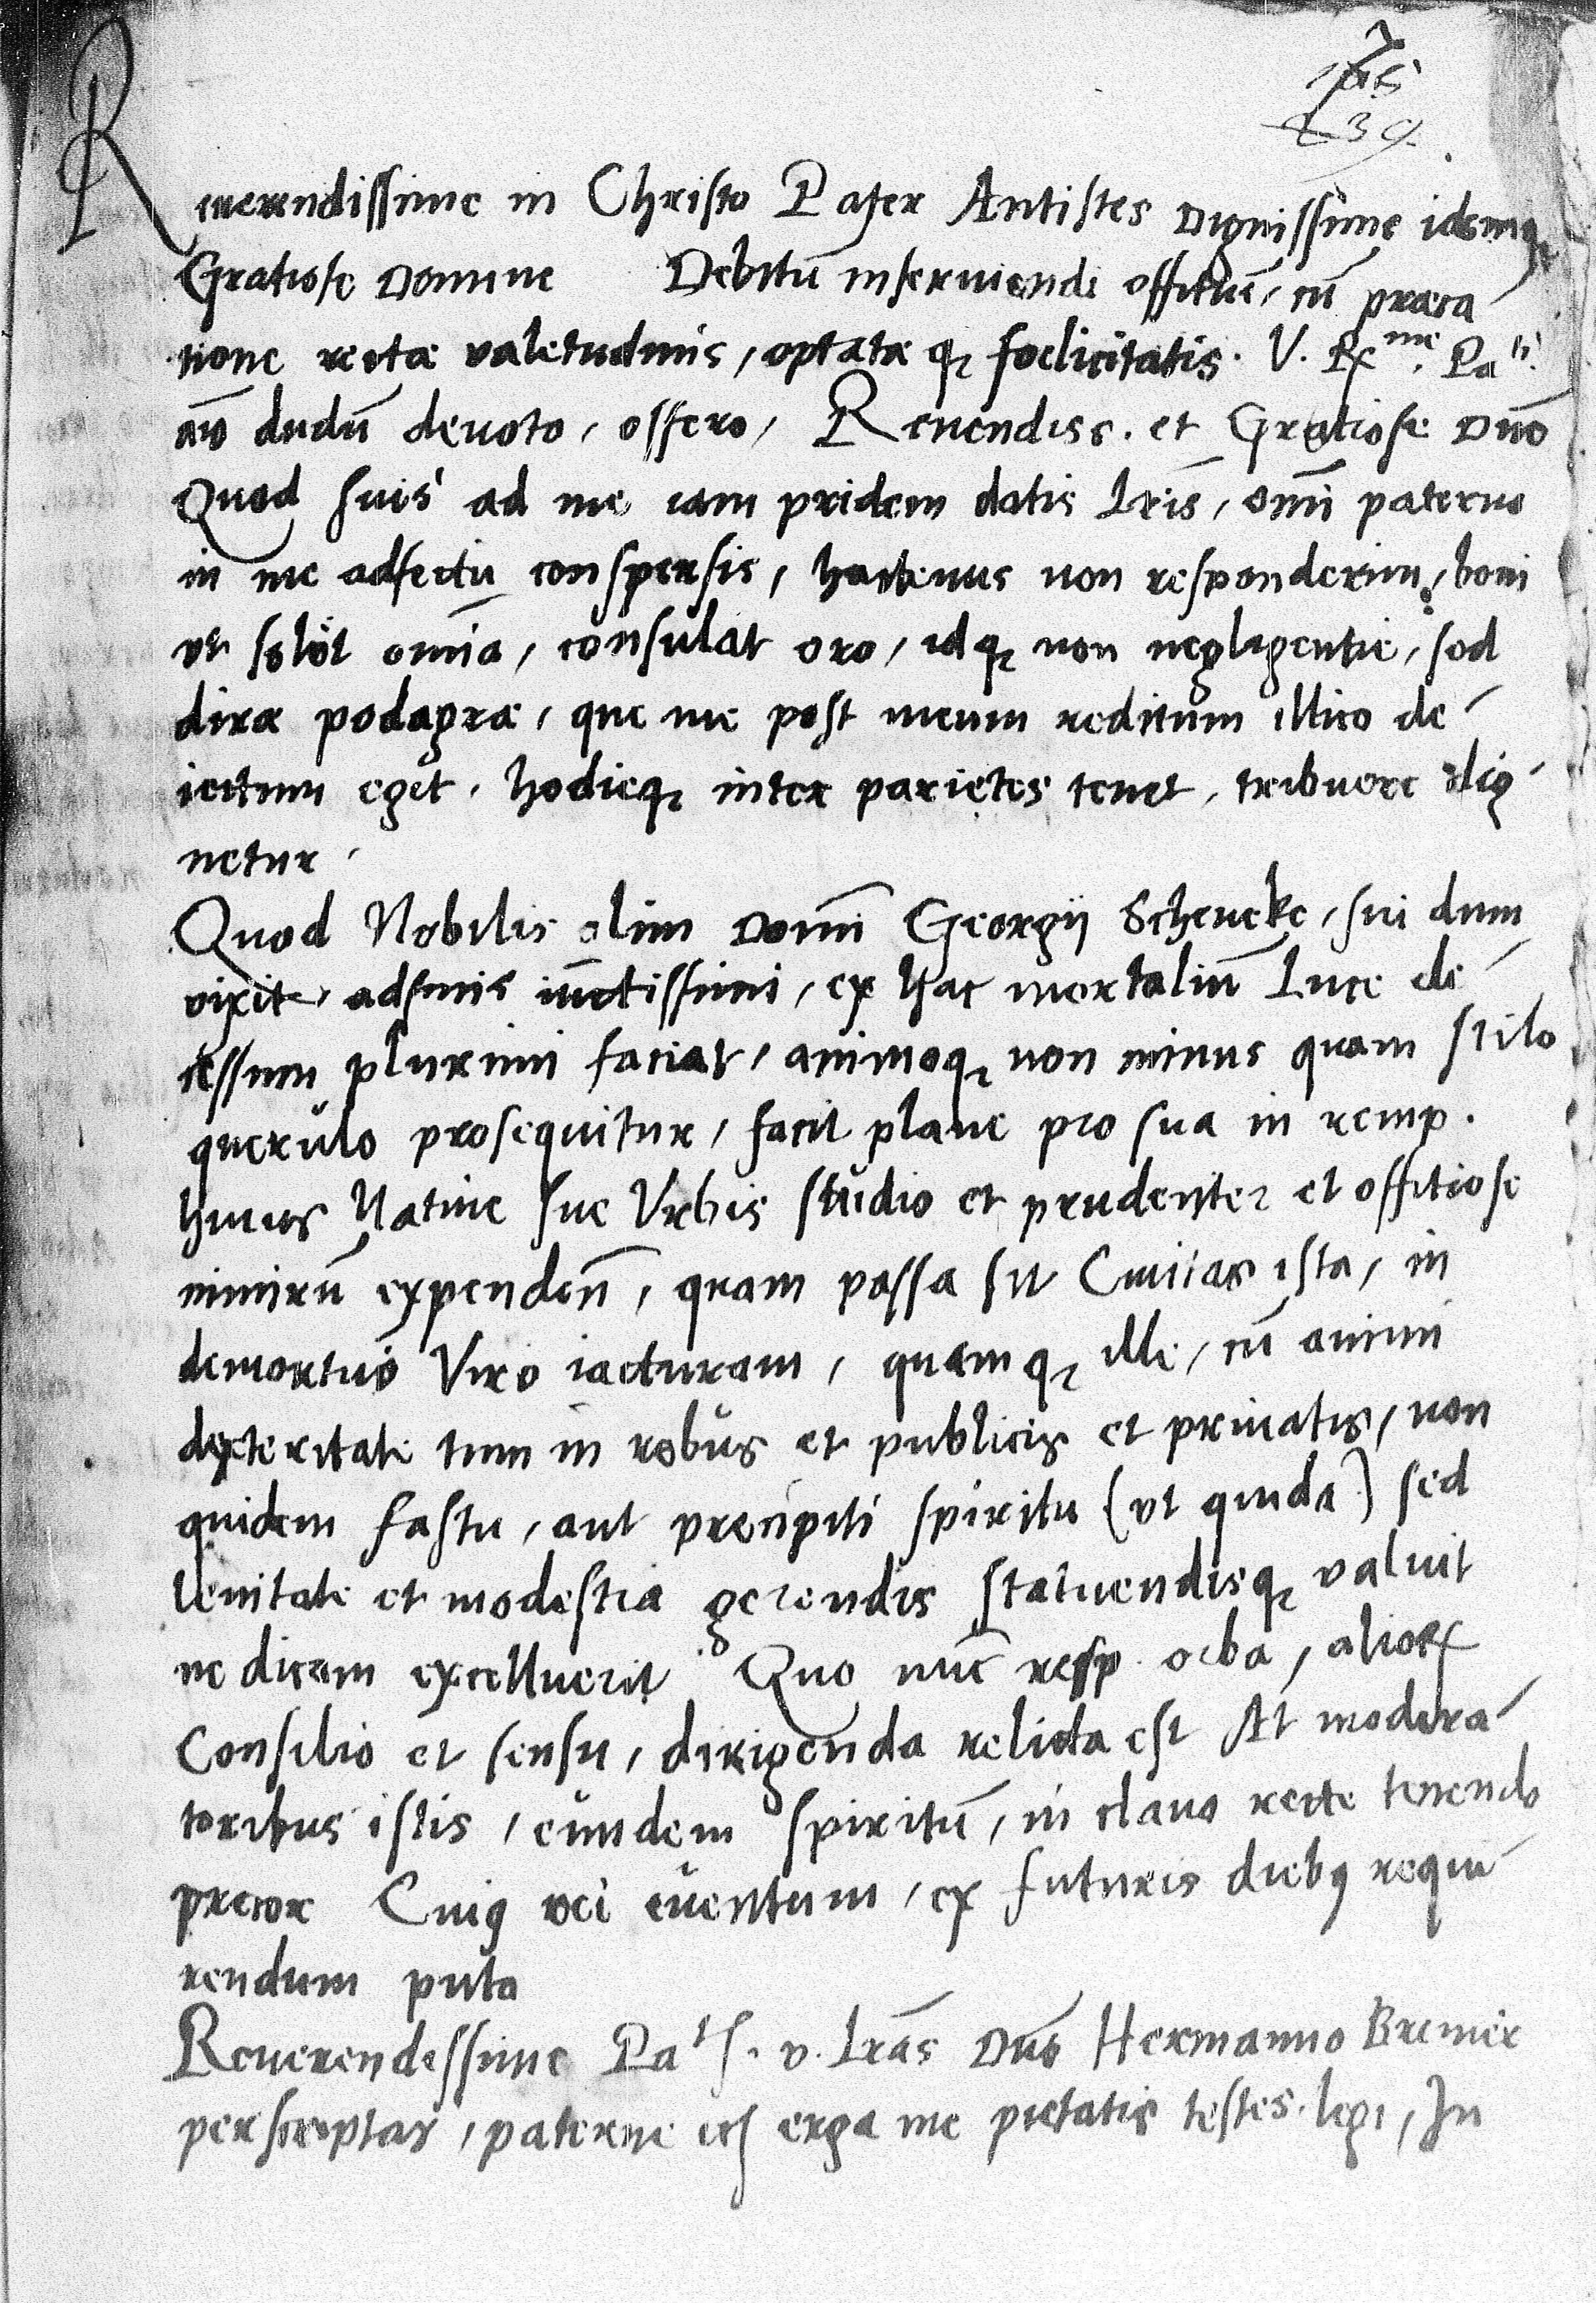 239
Reuerendissime in Christo Pater Antistes Dignissime idemq₃
Gratiose Domine Debitū inseruiendi offitiū, cū præca
tione rectæ valetudinis, optatæ q₃ foelicitatis. V. R^me. Pa^ti.
aīo dudū deuoto, offero, Reuendiss. et Gratiose Dnē
Quod suis ad me iam pridem datis Lr̄is, om̄i paterno
in me adfectu conspersis, hactenus non responderim, boni
vt solet omīa, consulat oro, idq₃ non negligentie, sed
diræ podagræ, que me post meum reditum illico de
iectum eget, hodieq₃ inter parietes tenet, tribuere dig
netur.
Quod Nobilis olim Domī Georgij Schencke, sui dum
vixit, adfinis iūctissimi, ex hac mortaliū Luce de
cessum plurimi faciat, animoq₃ non minus quam stilo
querulo prosequitur, facit plane pro sua in remp.
huius Natiue sue Vrbis studio et prudenter et offitiose
nimirū expendeñ, quam passa sit Ciuitas ista, in
demortuo Viro iacturam, quamq₃ ille, cū animi
dexteritate tum in rebus et publicis et priuatis, non
quidem fastu, aut precipiti spiritu (vt quidā) sed
lenitate et modestia gerendis statuendisq₃ valuit
ne dicam excelluerit Quo nūc resp. orba, alioꝝ
Consilio et sensu, dirigenda relicta est At modera
toribus istis, eundem spiritū, in clauo recte tenendo
precor Cuiꝰ rei euentum, ex futuris diebꝰ requi
rendum puto
Reuerendissime Pa^t. v. Lr̄as Dn̄o Hermanno Bremer
perscriptas, paterne erga me pietatis testes legi, In